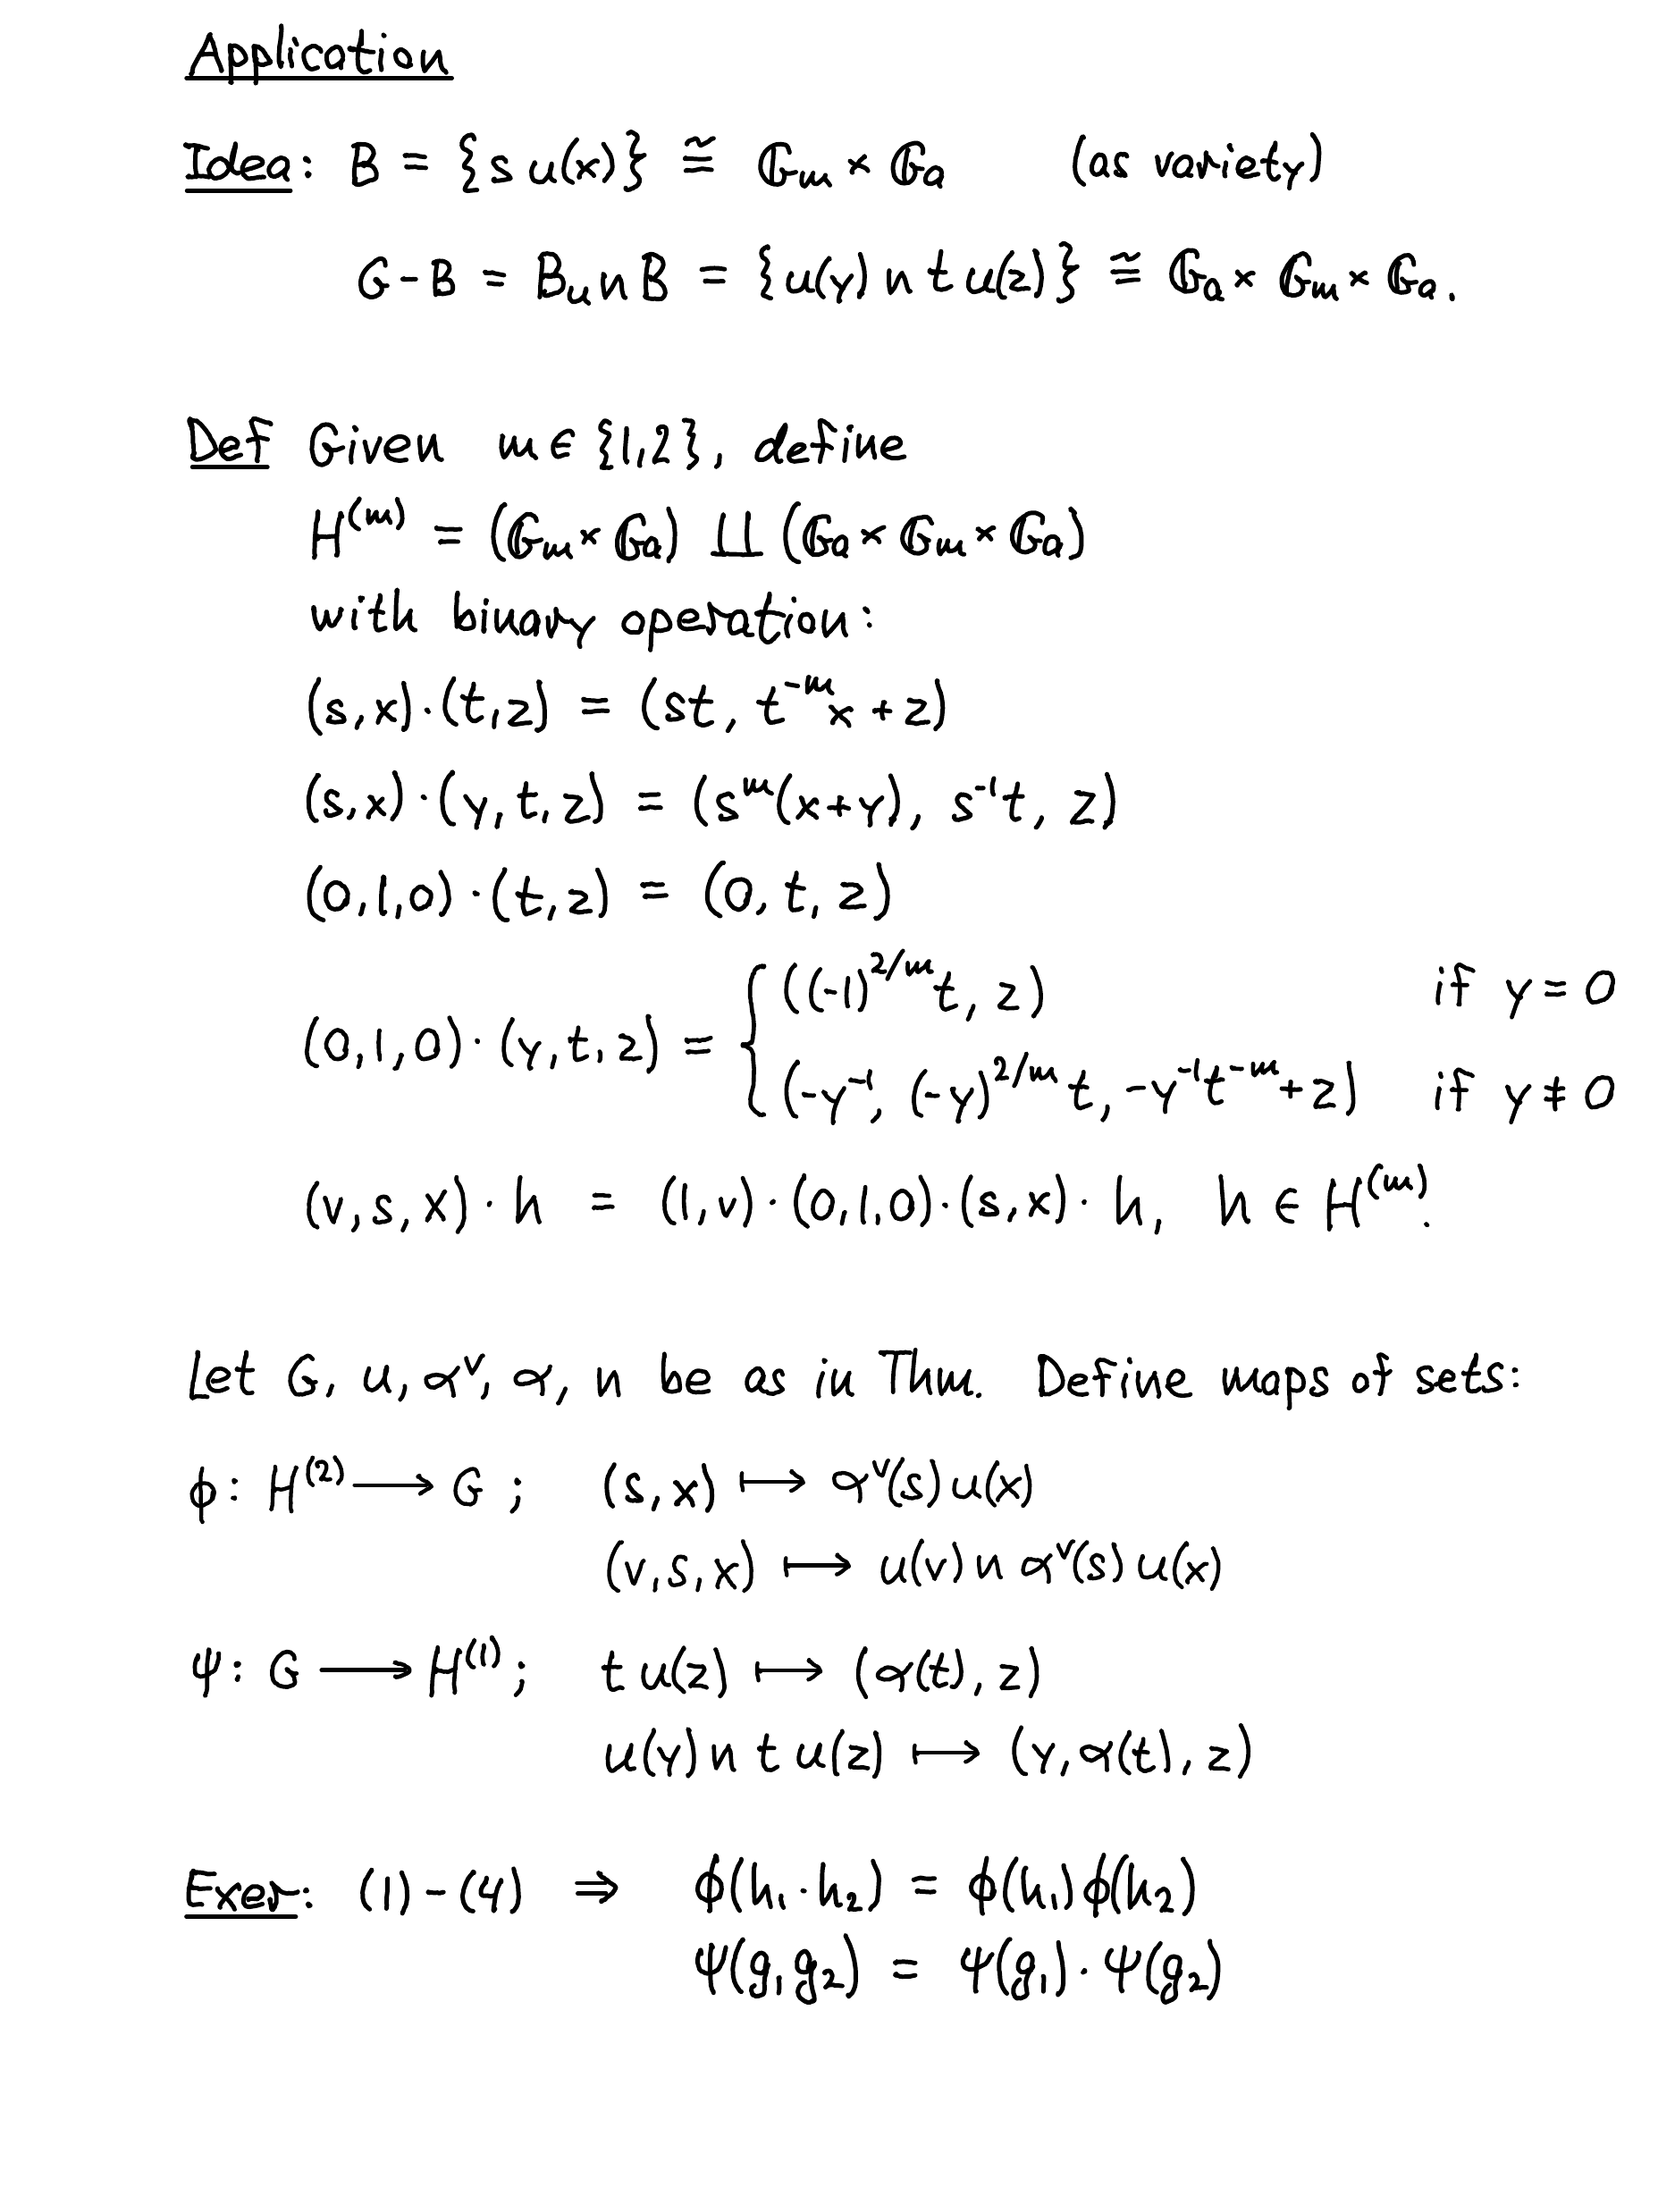 Application
Idea: B = {s u(x)} ≅ 𝔾m × 𝔾a (as variety)
G-B = Bu n B = {u(y) n t u(z)} ≅ 𝔾a × 𝔾m × 𝔾a.
Def Given m ∈ {1,2}, define
H^(m) = (𝔾m × 𝔾a) ⨿ (𝔾a × 𝔾m × 𝔾a)
with binary operation:
(s,x)·(t,z) = (st, t^-m x + z)
(s,x)·(y,t,z) = (s^m(x+y), s^-1 t, z)
(0,1,0)·(t,z) = (0,t,z)
(0,1,0)·(y,t,z) = { ((-1)^2/m t, z) if y = 0
(-y^-1, (-y)^2/m t, -y^-1 t^-m + z) if y ≠ 0
(v,s,x)·h = (1,v)·(0,1,0)·(s,x)·h, h ∈ H^(m).
Let G, u, α^∨, α, n be as in Thm. Define maps of sets:
ϕ: H^(2) ⟶ G ; (s,x) ⟼ α^∨(s) u(x)
(v,s,x) ⟼ u(v) n α^∨(s) u(x)
ψ: G ⟶ H^(1) ; t u(z) ⟼ (α(t), z)
u(y) n t u(z) ⟼ (y, α(t), z)
Exer: (1)-(4) ⇒ ϕ(h₁·h₂) = ϕ(h₁)ϕ(h₂)
ψ(g₁g₂) = ψ(g₁)·ψ(g₂)